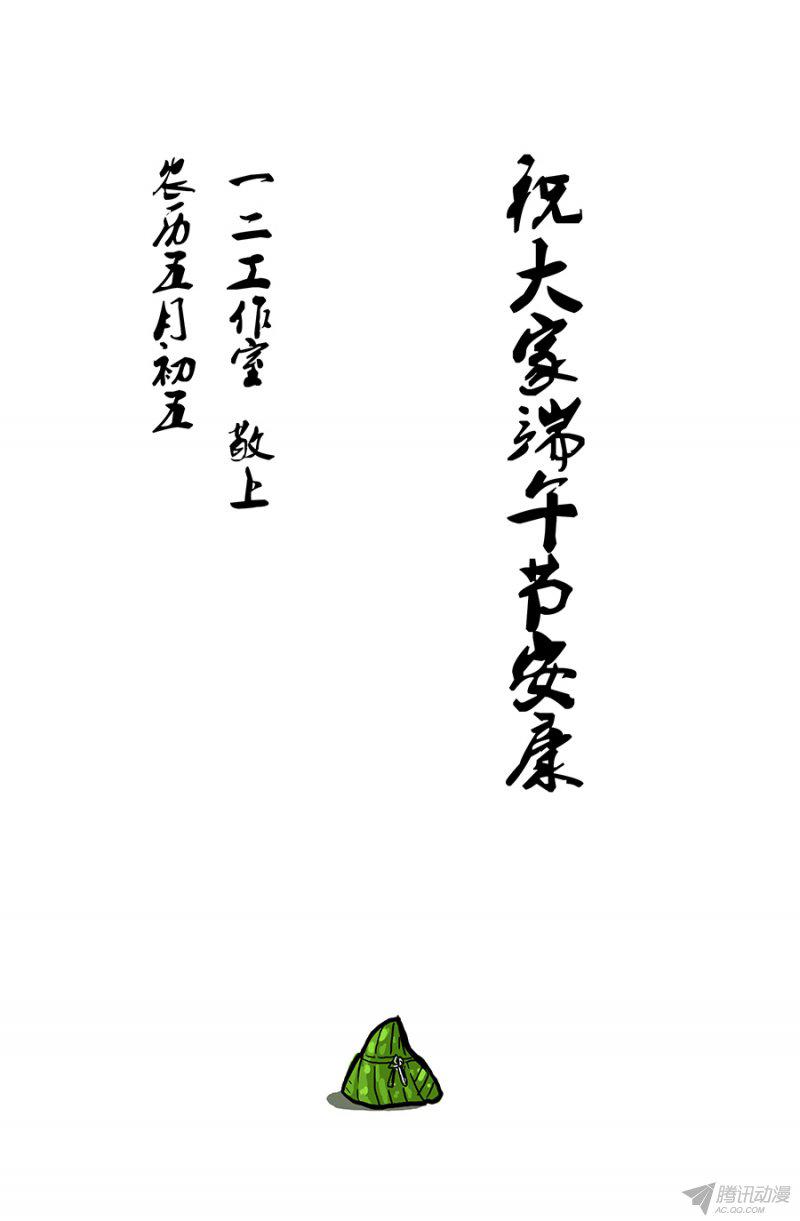 祝大家端午节安康
一二工作室 敬上
农历五月初五
腾讯动漫
AC.QQ.COM